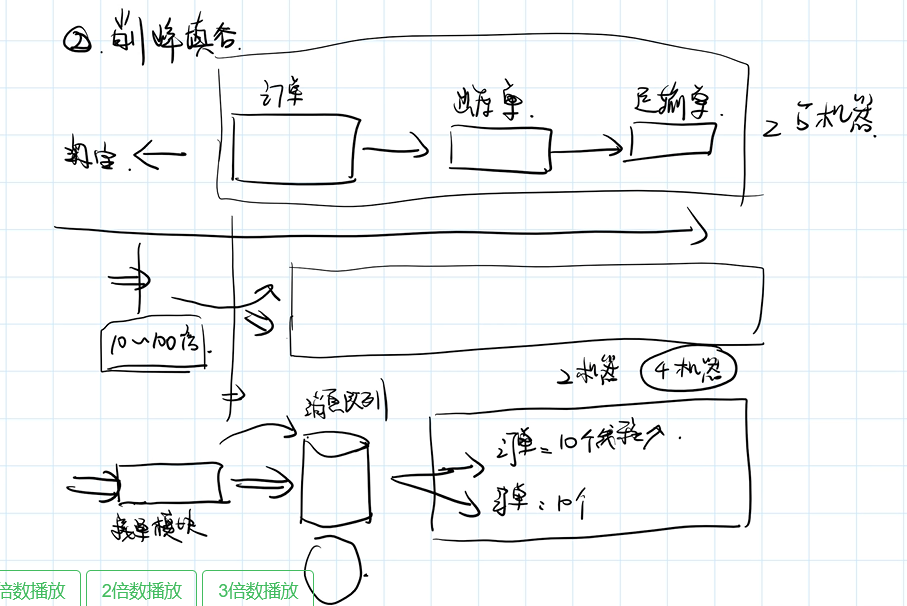 ②. 削峰填谷.
订单
出库单.
运输单.
2 5机器.
10~100倍.
2机器
4机器
消息队列
订单 = 10个线程
单 = 10个
接单模块
倍数播放
2倍数播放
3倍数播放